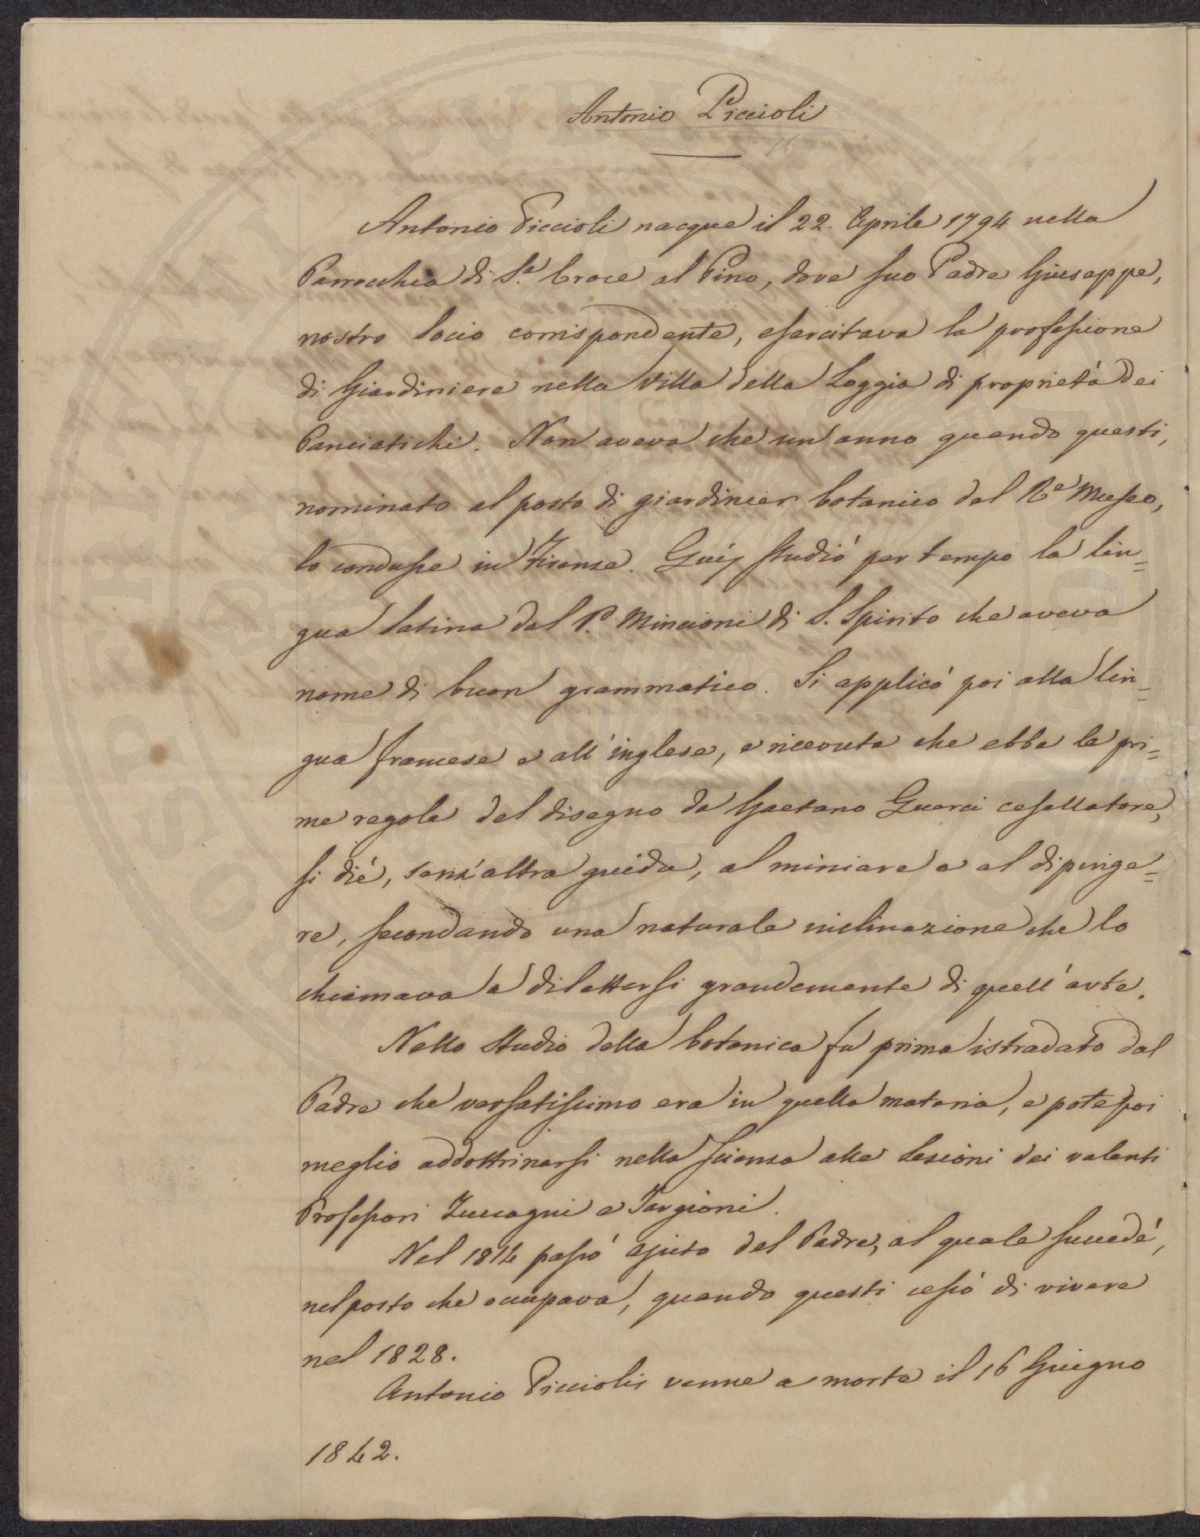 Antonio Piccioli
Antonio Piccioli nacque il 22. Aprile 1794 nella
Parrocchia di S.ª Croce al Pino, dove suo Padre Giuseppe,
nostro Socio corrispondente, esercitava la professione
di Giardiniere nella Villa della Loggia di proprietà dei
Panciatichi. Non aveva che un anno quando questi,
nominato al posto di giardinier botanico del R.º Museo,
lo condusse in Firenze. Quij studiò per tempo la lin=
gua latina dal P. Mincioni di S. Spirito che aveva
nome di buon grammatico. Si applicò poi alla lin=
gua francese e all'inglese, e ricevute che ebbe le pri=
me regole del disegno da Gaetano Guerci cesellatore,
si diè, senz'altra guida, al miniare e al dipinge=
re, secondando una naturale inclinazione che lo
chiamava a dilettarsi grandemente di quell'arte.
Nello studio della botanica fu prima istradato dal
Padre che versatissimo era in quella materia, e potè poi
meglio addottrinarsi nella Scienza alle Lezioni dei valenti
Professori Zuccagni e Targioni.
Nel 1814 passò ajuto del Padre, al quale succedè,
nel posto che occupava, quando questi cessò di vivere
nel 1828.
Antonio Piccioli venne a morte il 16 Giugno
1842.